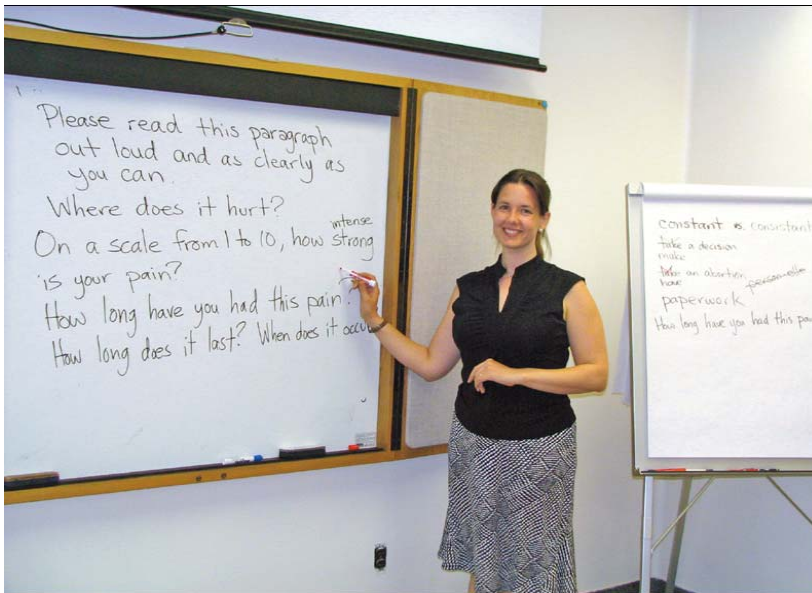 Please read this paragraph
out loud and as clearly as
you can.
Where does it hurt?
intense
On a scale from 1 to 10, how strong
is your pain?
How long have you had this pain?
How long does it last? When does it occu
constant vs. consistant
take a decision
make
an abortion
have
paperwork
How long have you had this pai